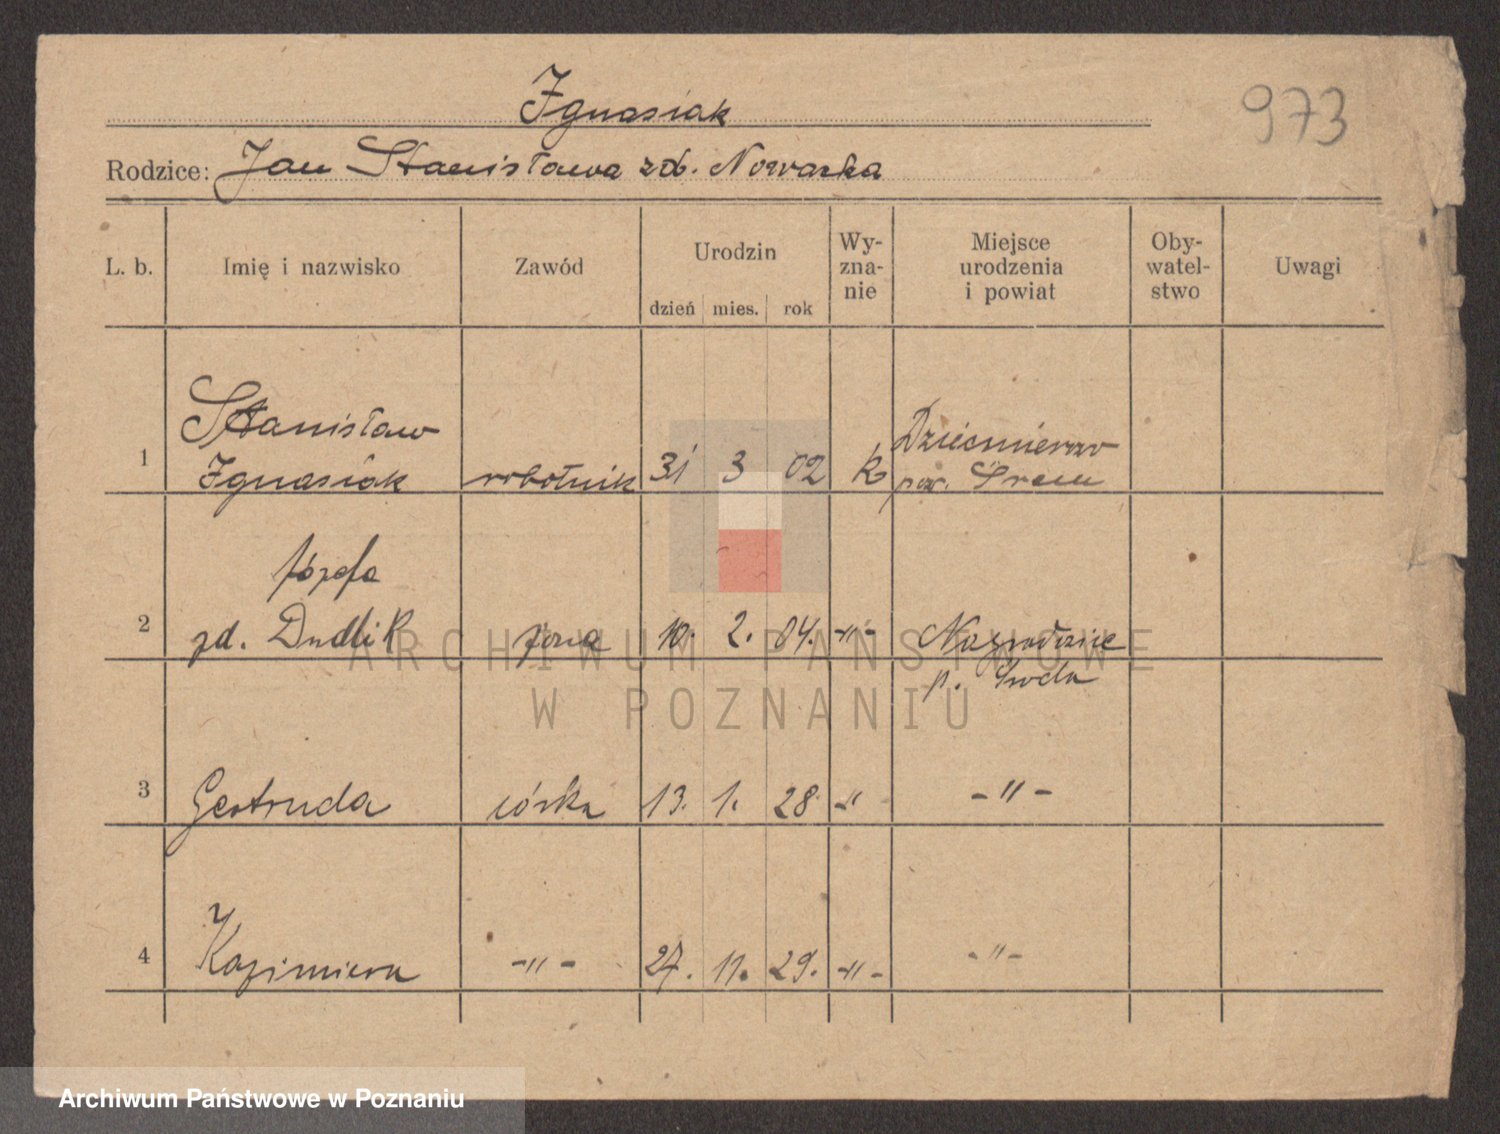 Ignasiak
973
Rodzice: Jan Stanisława zd. Nowacka
L. b. Imię i nazwisko Zawód Urodzin dzień mies. rok Wy-zna-nie Miejsce urodzenia i powiat Oby-watel-stwo Uwagi
Stanisław
1 Ignasiak robotnik 31 3 02 k Dziećmierowo
pow. Śrem
Józefa
2 zd. Dudlik żona 10. 2. 04. -"-
p. Środa
3 Gertruda córka 13. 1. 28. -" - -"-
4 Kazimiera -"- 27. 11. 29. -"- -"-
ARCHIWUM PAŃSTWOWE
W POZNANIU
Archiwum Państwowe w Poznaniu